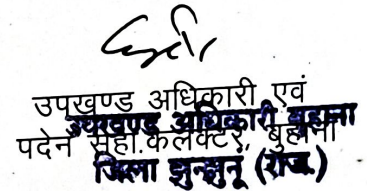 उपखण्ड अधिकारी एवं
उपखण्ड अधिकारी बुहाना
पदेन सहा.कलेक्टर, बुहाना
जिला झुन्झुनू (राज.)